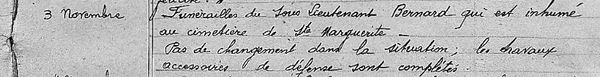 3 Novembre Funérailles du Sous Lieutenant Bernard qui est inhumé
au cimetière de Ste Marguerite -
Pas de changement dans la situation ; les chavaux
accessoires de défense sont complétés.